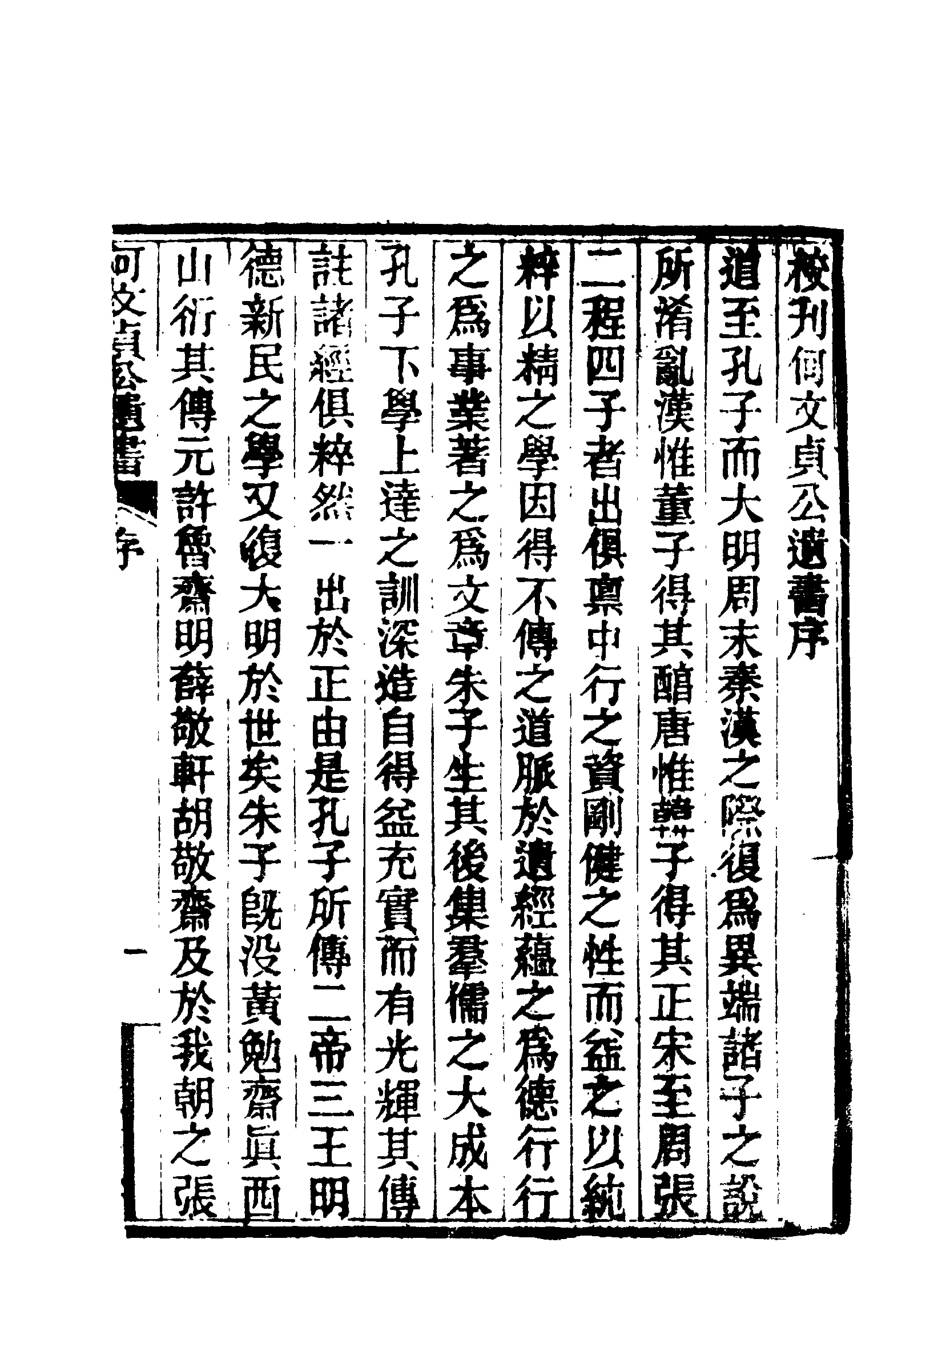 校刊何文貞公遺書序
道至孔子而大明周末秦漢之際復爲異端諸子之說
所淆亂漢惟董子得其醇唐惟韓子得其正宋至周張
二程四子者出俱禀中行之資剛健之性而益之以純
粹以精之學因得不傳之道脈於遺經蘊之爲德行行
之爲事業著之爲文章朱子生其後集羣儒之大成本
孔子下學上達之訓深造自得益充實而有光輝其傳
註諸經俱粹然一出於正由是孔子所傳二帝三王明
德新民之學又復大明於世矣朱子旣没黃勉齋眞西
山衍其傳元許魯齋明薛敬軒胡敬齋及於我朝之張
何文貞公遺書 序 一